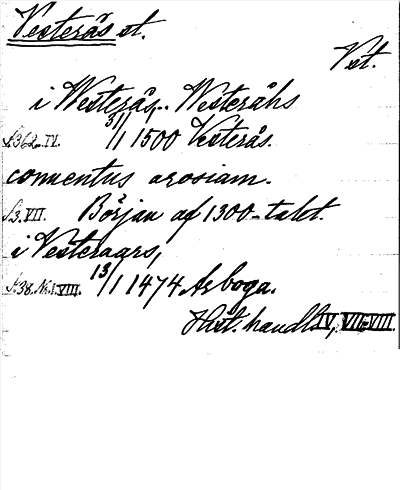 Vesterås st.
Vst.
i Westerås,. Westeråhs
s. 362. IV. 31/1 1500 Vesterås.
conuentus arosiam.
s. 3. VII. Början af 1300-talet.
i Vesteraars,
s. 38. N. 1. VIII. 13/1 1474 Arboga.
Hist. handl. IV, VII-VIII.